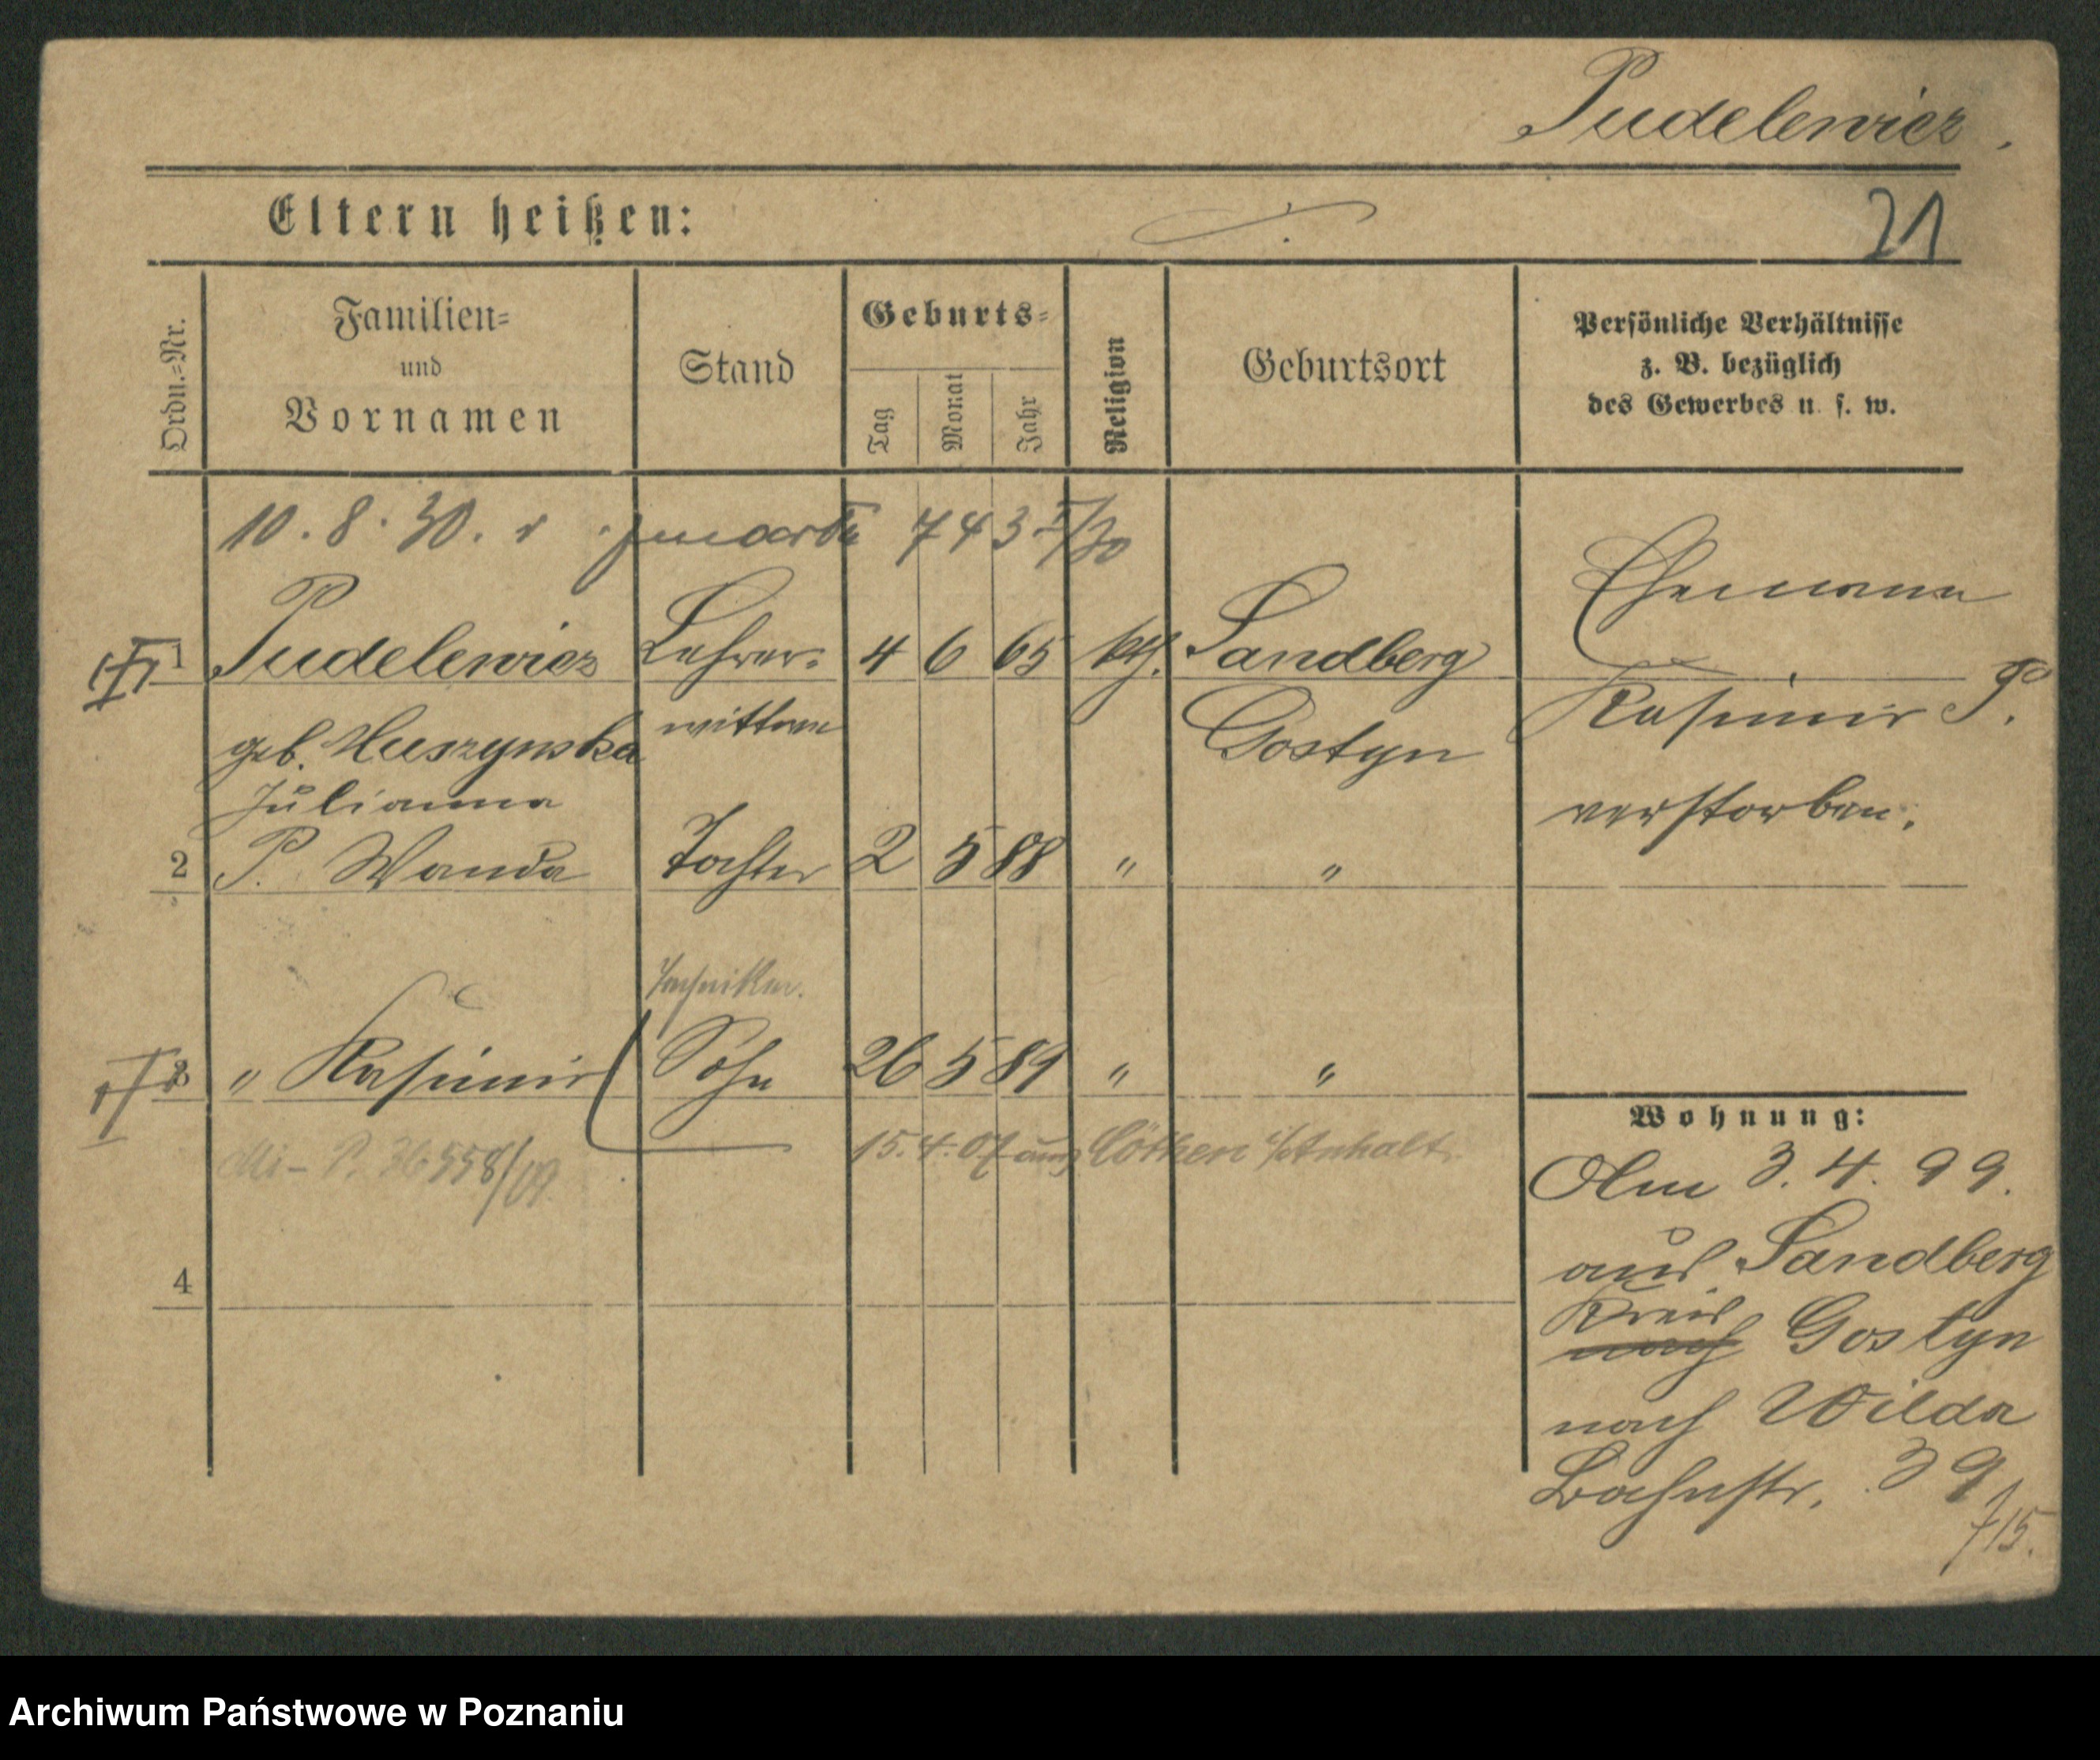 Pudelewicz.
Eltern heißen:
21
Ordn.=Nr.
Familien=
und
Vornamen
Stand
Geburts=
Tag
Monat
Jahr
Religion
Geburtsort
Persönliche Verhältnisse
z. B. bezüglich
des Gewerbes u. s. w.
10. 8. 30. zmarła 743 I/30
Ehemann
1 Pudelewicz Lehrer= 4 6 65 kth. Sandberg
Kasimir P.
geb. Muszynska wittwe Gostyn
Julianna
verstorben.
2 P. Wanda Tochter 2 5 88 " "
Techniker.
3 " Kasimir Sohn 26 5 89 " "
Mi - P. 36558/09. 15. 4. 07 aus Cöthen i/Anhalt.
4
Wohnung:
Am 3. 4. 99.
aus Sandberg
Kreis
nach Gostyn
nach Wilda
Bachstr. 39
715.
Archiwum Państwowe w Poznaniu